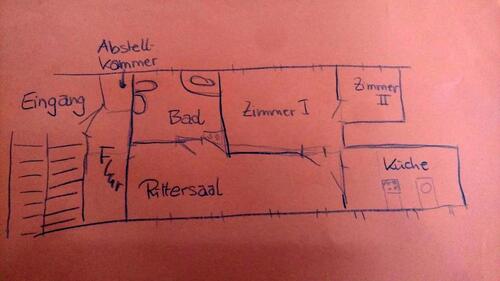 Abstell-
kammer
Eingang
Bad
Zimmer I
Zimmer
II
Flur
Rittersaal
Küche